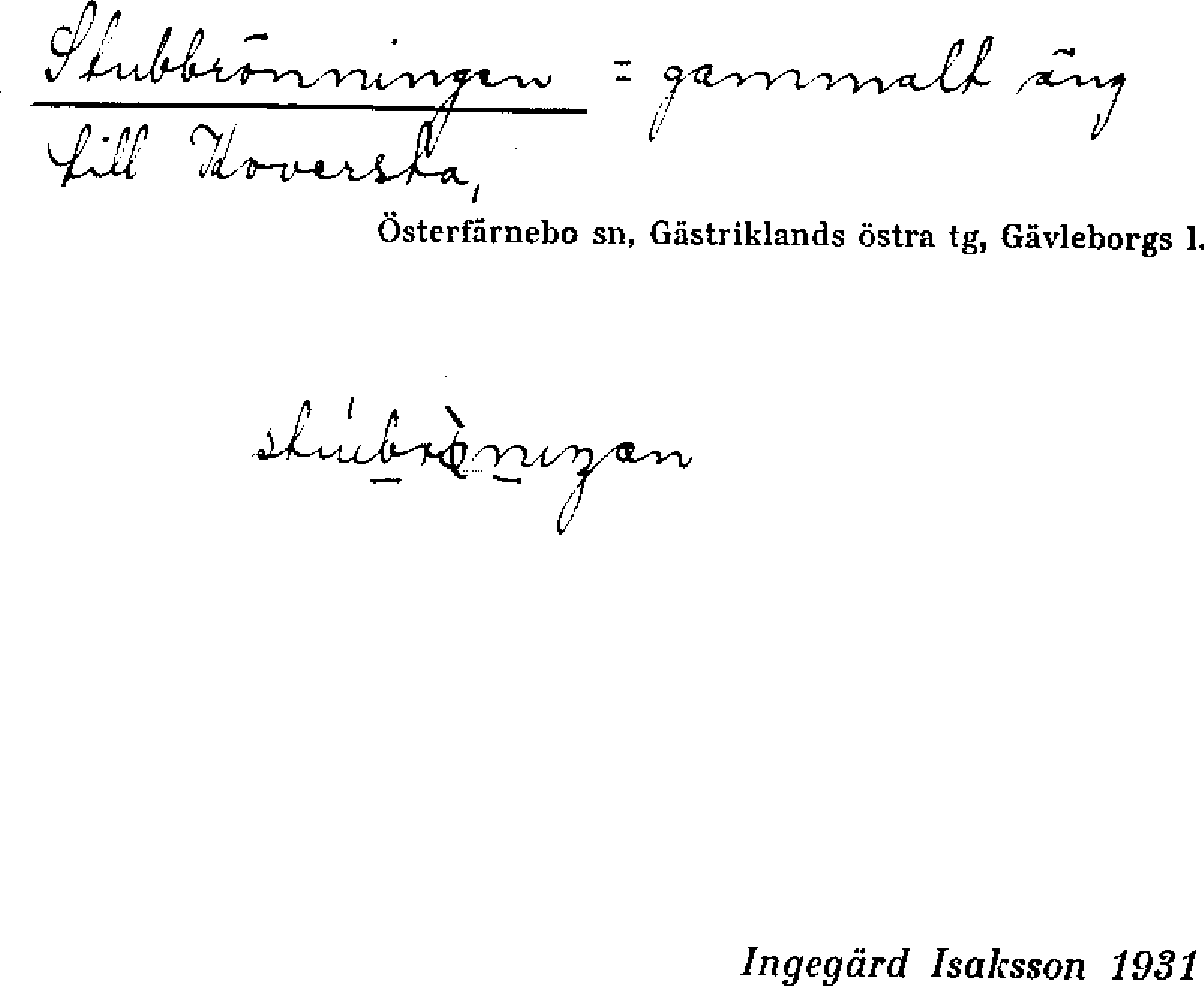 Stubbrönningen = gammalt äng
till Koversta,
Österfärnebo sn, Gästriklands östra tg, Gävleborgs l.
Ingegärd Isaksson 1931